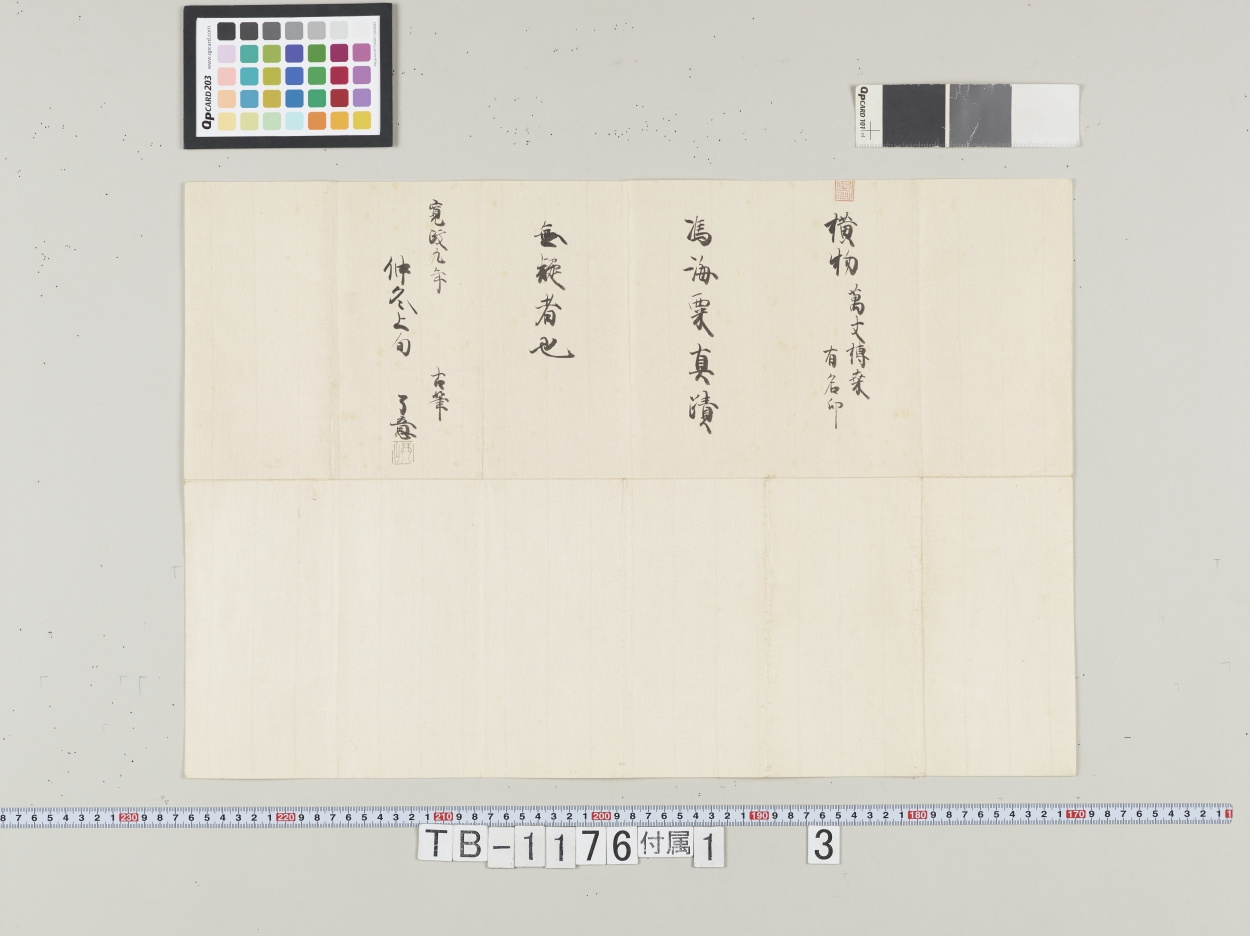 QpCARD 203
www.qpcard.com
QpCARD 101
横物
萬丈榑桒
有名印
馮海粟真蹟
無疑者也
寛政九年
仲冬上旬
古筆
了意
8 7 6 5 4 3 2 1 230 9 8 7 6 5 4 3 2 1 220 9 8 7 6 5 4 3 2 1 210 9 8 7 6 5 4 3 2 1 200 9 8 7 6 5 4 3 2 1 190 9 8 7 6 5 4 3 2 1 180 9 8 7 6 5 4 3 2 1 170 9 8 7 6 5 4 3 2 1
TB-1176付属1 3